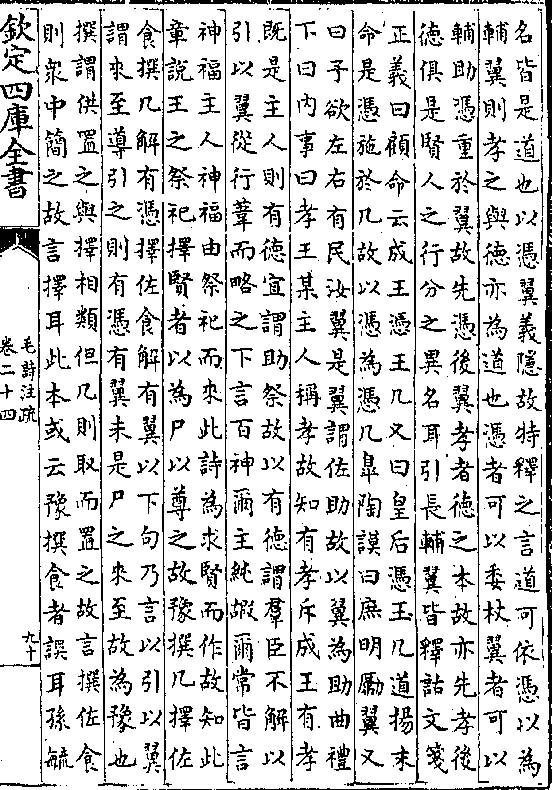 名皆是道也以憑翼義隱故特釋之言道可依憑以為
輔翼則孝之與德亦為道也憑者可以委杖翼者可以
輔助憑重於翼故先憑後翼孝者德之本故亦先孝後
德俱是賢人之行分之異名耳引長輔翼皆釋詁文箋
正義曰顧命云成王憑玉几又曰皇后憑玉几道揚末
命是憑施於几故以憑為憑几臯陶謨曰庶明勵翼又
曰予欲左右有民汝翼是翼謂佐助故以翼為助曲禮
下曰内事曰孝王某主人稱孝故知有孝斥成王有孝
既是主人則有德宜謂助祭故以有德謂羣臣不解以
引以翼從行葦而略之下言百神爾主純嘏爾常皆言
神福主人神福由祭祀而來此詩為求賢而作故知此
章說王之祭祀擇賢者以為尸以尊之故豫撰几擇佐
食撰几解有憑擇佐食解有翼以下句乃言以引以翼
謂來至導引之則有憑有翼未是尸之來至故為豫也
撰謂供置之與擇相類但几則取而置之故言撰佐食
則衆中簡之故言擇耳此本或云豫撰食者誤耳孫毓
欽定四庫全書
毛詩注疏
卷二十四
九十